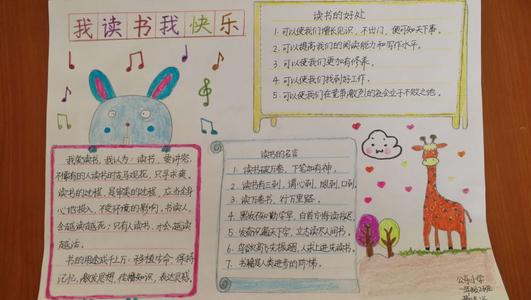 我读书我快乐
读书的好处
1. 可以使我们增长见识，不出门，便可知天下事。
2. 可以提高我们的阅读能力和写作水平。
3. 可以使我们更加有修养。
4. 可以使我们找到好工作。
5. 可以使我们在竞争激烈的社会立于不败之地。
我爱读书，我认为：读书，要讲究，
不像有的人读书的走马观花，只字求爽，
读书的过程，是审美的过程，应当全身
心地投入，不受环境的影响，书读人，
会越读越死；只有人读书，才会越读
越活。
书的用途成千上万：珍惜生命，保持
记忆，激发思想，传播知识，表达灵感。
读书的名言
1. 读书破万卷，下笔如有神。
2. 读书有三到，谓心到，眼到，口到。
3. 读万卷书，行万里路。
4. 黑发不知勤学早，白首方悔读书迟。
5. 发奋识遍天下字，立志读尽人间书。
6. 鸟欲高飞先振翅，人求上进先读书。
7. 书籍是人类进步的阶梯。
小学